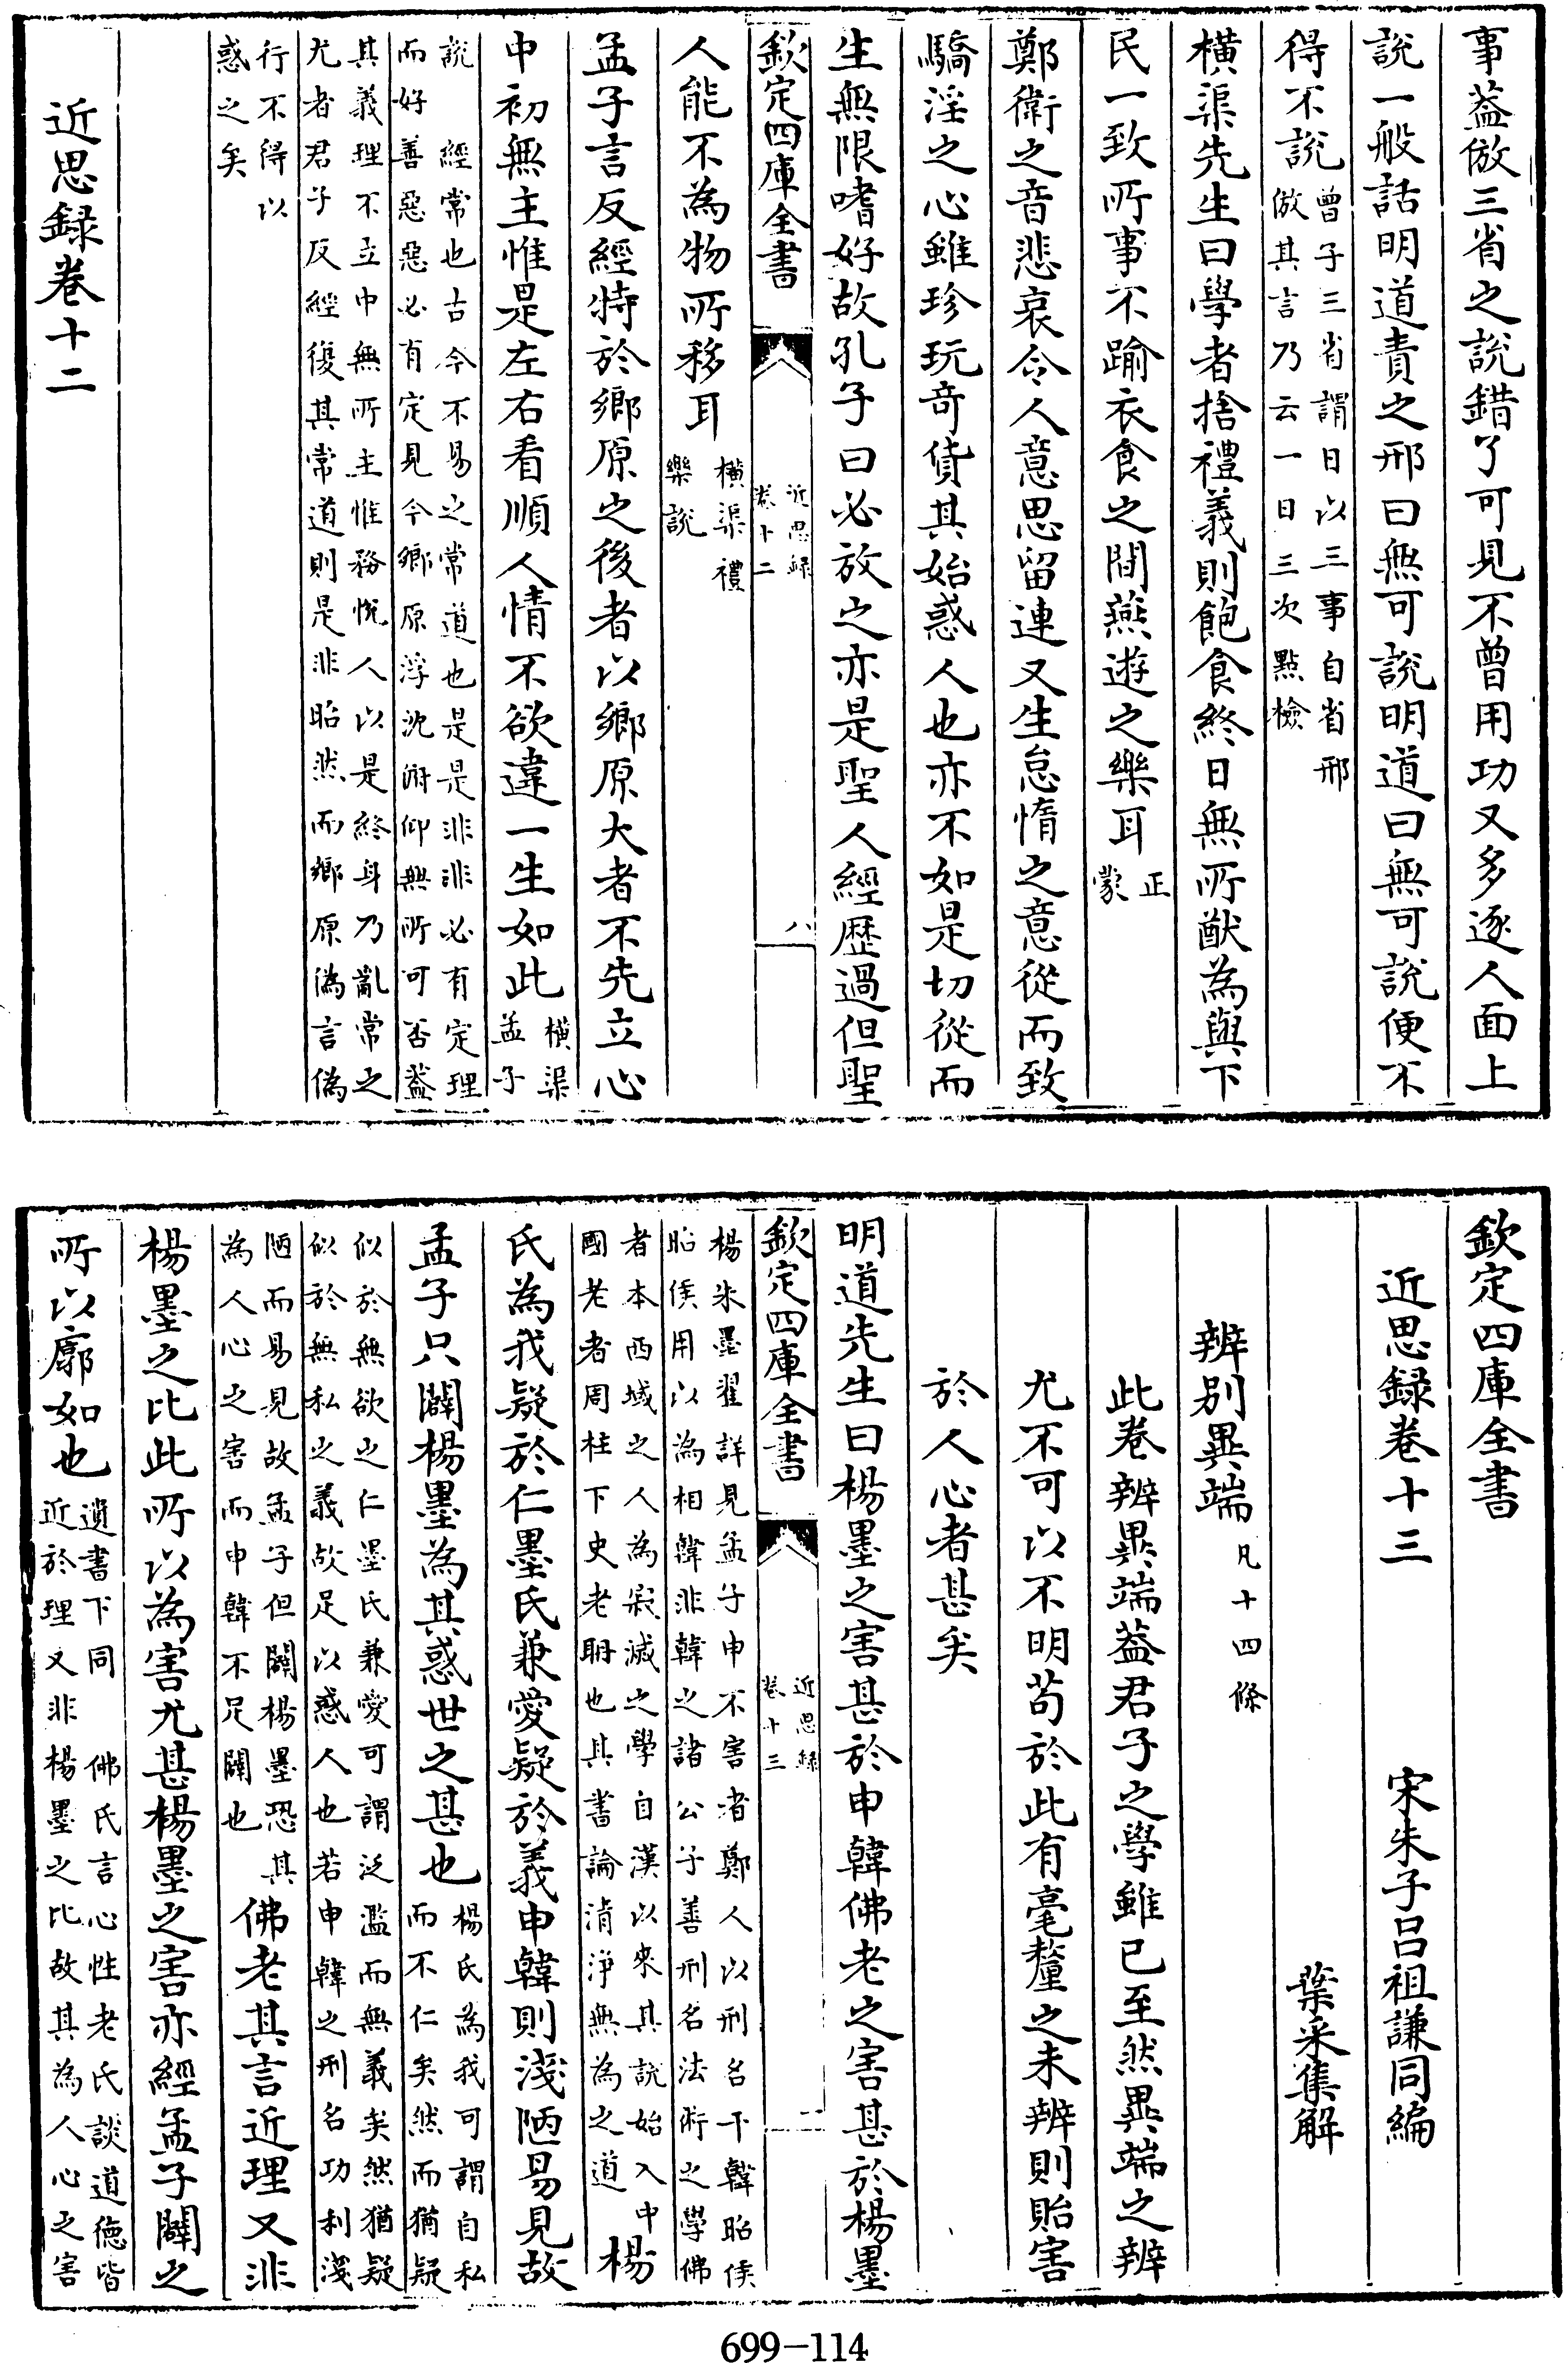 事葢倣三省之説錯了可見不曽用功又多逐人面上
説一般話明道責之邢曰無可説明道曰無可説便不
得不説曽子三省謂日以三事自省邢
倣其言乃云一日三次㸃檢
横渠先生曰學者捨禮義則飽食終日無所猷為與下
民一致所事不踰衣食之間燕遊之樂耳正
蒙
鄭衛之音悲哀令人意思留連又生怠惰之意從而致
驕淫之心雖珍玩竒貨其始惑人也亦不如是切從而
生無限嗜好故孔子曰必放之亦是聖人經歴過但聖
欽定四庫全書
近思録
卷十二
八
人能不為物所移耳横渠禮
樂説
孟子言反經特於鄉原之後者以鄉原大者不先立心
中初無主惟是左右看順人情不欲違一生如此横渠
孟子
説 經常也古今不易之常道也是是非非必有定理
而好善惡惡必有定見今鄉原浮沈俯仰無所可否葢
其義理不立中無所主惟務恱人以是終身乃亂常之
尤者君子反經復其常道則是非昭然而鄉原偽言偽
行不得以
惑之矣
近思録卷十二
欽定四庫全書
近思録卷十三 宋朱子吕祖謙同編
葉采集解
辨别異端凡十四條
此卷辨異端葢君子之學雖已至然異端之辨
尤不可以不明苟於此有毫釐之未辨則貽害
於人心者甚矣
明道先生曰楊墨之害甚於申韓佛老之害甚於楊墨
欽定四庫全書
近思録
卷十三
二
楊朱墨翟詳見孟子申不害者鄭人以刑名干韓昭侯
昭侯用以為相韓非韓之諸公子善刑名法術之學佛
者本西域之人為寂滅之學自漢以來其説始入中
國老者周柱下史老聃也其書論清淨無為之道楊
氏為我疑於仁墨氏兼愛疑於義申韓則淺陋易見故
孟子只闢楊墨為其惑世之甚也楊氏為我可謂自私
而不仁矣然而猶疑
似於無欲之仁墨氏兼愛可謂泛濫而無義矣然猶疑
似於無私之義故足以惑人也若申韓之刑名功利淺
陋而易見故孟子但闢楊墨恐其
為人心之害而申韓不足闢也佛老其言近理又非
楊墨之比此所以為害尤甚楊墨之害亦經孟子闢之
所以廓如也遺書下同 佛氏言心性老氏談道徳皆
近於理又非楊墨之比故其為人心之害
699-114